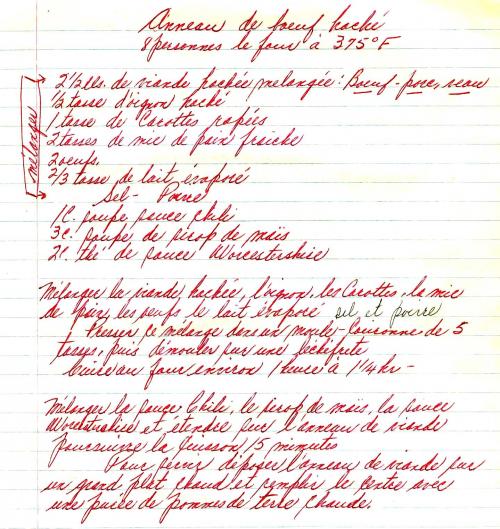 Anneau de boeuf haché
8 personnes le four à 375°F
mélanger
2 1/2 lbs. de viande hachée mélangée: Boeuf-porc, veau
1/2 tasse d'oignon haché
1 tasse de Carottes rapées
2 tasses de mie de pain fraiche
2 oeufs.
2/3 tasse de lait évaporé
Sel - Poivre
1 C. soupe sauce Chili
3 c. soupe de sirop de maïs
2 c. thé de sauce Worcestershire
Mélanger la viande hachée, l'oignon, les Carottes, la mie
de pain, les oeufs le lait évaporé sel et poivre
Presser ce mélange dans un moule-Couronne de 5
tasses, puis démouler sur une lèchefrite
Cuire au four environ 1 heure à 1 1/4 hr -
Mélanger la sauce Chili, le sirop de maïs, la sauce
et étendre sur l'anneau de viande
Poursuivre la Cuisson 15 minutes
Pour servir déposer l'anneau de viande sur
un grand plat chaud et remplir le centre avec
une purée de pommes de terre chaude.